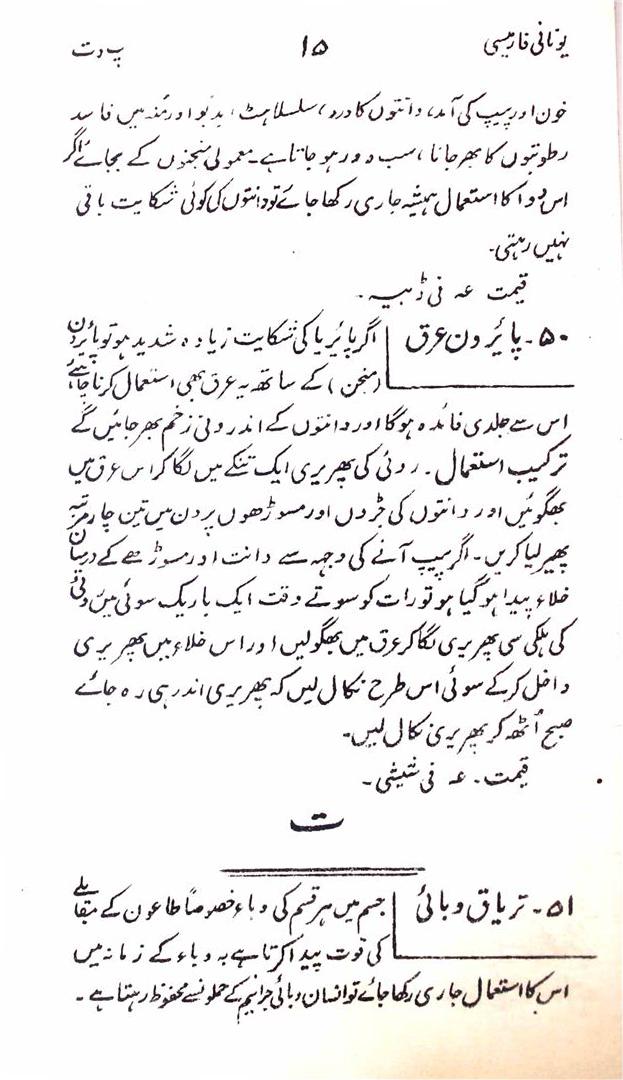 یونانی فارمیسی ۱۵ پ دت
خون اور پیپ کی آمد، دانتوں کا درد، سلسلاہٹ، بدبو اور منہ میں فاسد
رطوبتوں کا بھر جانا، سب دور ہو جاتا ہے۔ معمولی منجنوں کے بجائے اگر
اس دوا کا استعمال ہمیشہ جاری رکھا جائے تو دانتوں کی کوئی شکایت باقی
نہیں رہتی۔
قیمت عہ فی ڈبیہ۔
۵۰۔ پائرون عرق اگر پائریا کی شکایت زیادہ شدید ہو تو پائرون
(منجن) کے ساتھ یہ عرق بھی استعمال کرنا چاہئے
اس سے جلدی فائدہ ہوگا اور دانتوں کے اندرونی زخم بھر جائیں گے
ترکیب استعمال۔ روئی کی پھریری ایک تنکے میں لگا کر اس عرق میں
بھگوئیں اور دانتوں کی جڑوں اور مسوڑھوں پر دن میں تین چار مرتبہ
پھیر لیا کریں۔ اگر پیپ آنے کی وجہ سے دانت اور مسوڑھے کے درمیان
خلاء پیدا ہو گیا ہو تو رات کو سوتے وقت ایک باریک سوئی میں روئی
کی ہلکی سی پھریری لگا کر عرق میں بھگو لیں اور اس خلاء میں پھریری
داخل کر کے سوئی اس طرح نکال لیں کہ پھریری اندر ہی رہ جائے
صبح اُٹھ کر پھریری نکال لیں۔
قیمت۔ عہ فی شیشی۔
ت
۵۱۔ تریاق وبائی جسم میں ہر قسم کی وباء خصوصاً طاعون کے مقابلے
کی قوت پیدا کرتا ہے۔ وباء کے زمانہ میں
اس کا استعمال جاری رکھا جائے تو انسان وبائی جراثیم کے حملوں سے محفوظ رہتا ہے۔